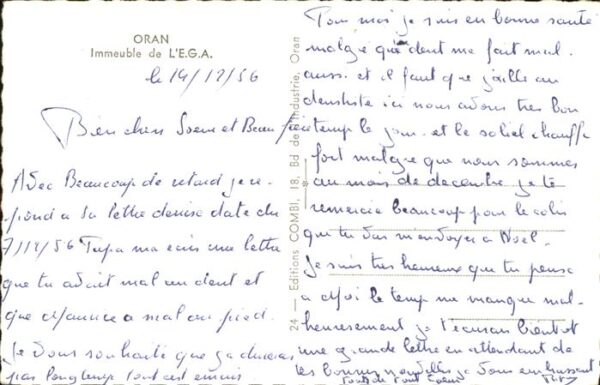 ORAN
Immeuble de L'E.G.A.
le 14/12/56
Bien chers Soeur et Beau frere
Avec Beaucoup de retard je re
pond a ta lettre dater du
7/12/56 Tu ma ecris une lettre
que tu avait mal au dent et
que a mal au pied.
Je vous souhaite que ça
pas longtemp tout est
24 — Editions COMBI, 18, Bd de l'Industrie, Oran
Pour moi je suis en bonne santé
malgre que dent me fait mal
aussi et il faut que j'aille au
dentiste ici nous avons tres bon
temp le jour et le soliel chauffe
fort malgre que nous sommes
au mois de decembre je te
remercie beaucoup pour le colis
que tu vas m'envoyer a Noel.
Je suis tres heureux que tu pense
a moi le temp me manque mal-
heureusement je t'ecrirai bientot
une grande lettre en attendant de
tes bonnes nouvelles je vous embrassant
tous de tout coeur